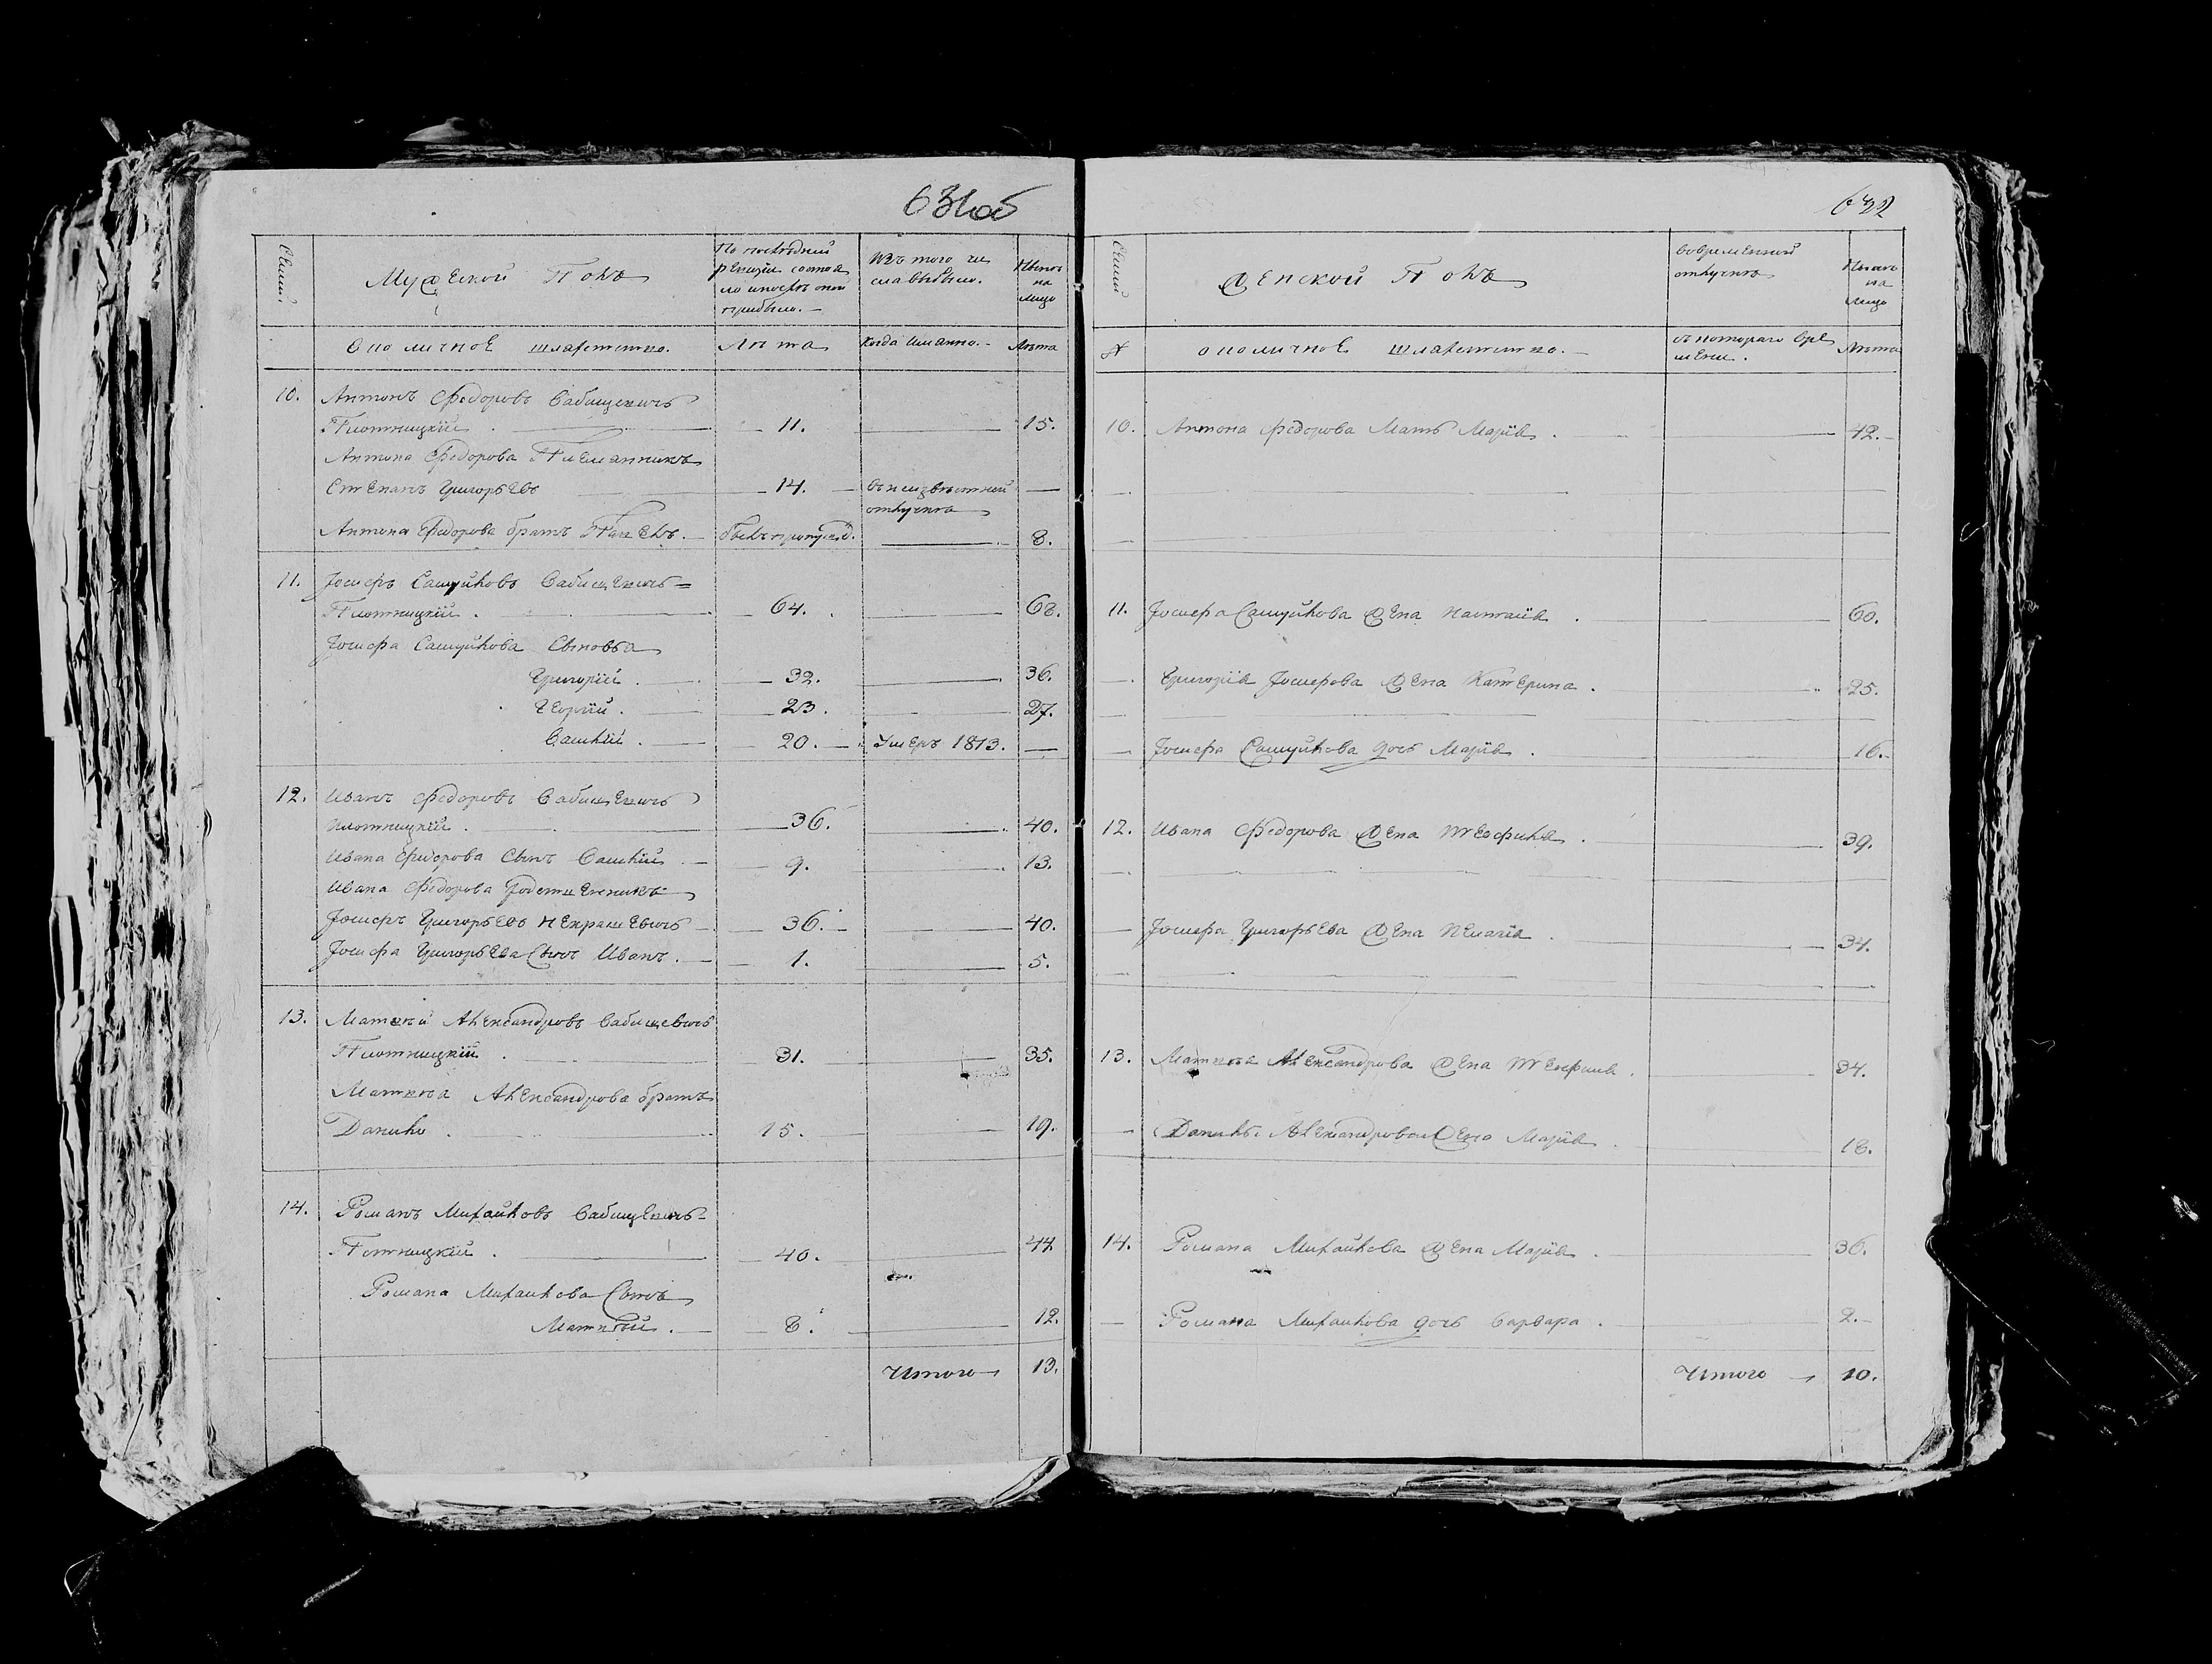 631 об
Семьи
Мужеской Полъ
По последней
ревизіи состоя
ло и после оной
прибыло.
Изъ того чи
сла выбыло.
Ныне
на
лицо
Околичное шляхетство.
Лета
Когда именно.
Лета
10. Антонъ Федоровъ Савищевичь
Плотницкій . 11. 15.
Антона Федорова Племянникъ
Степанъ Григорьевъ 14. въ неизвестной
отлучке
Антона Федорова братъ Павелъ. былъ пропущ. 8.
11. Іосифъ Самуйловъ Савищевичь
Плотницкій . 64. 68.
Іосифа Самуйлова Сыновья
Григорій . 32. 36.
Георгій . 23. 27.
Василій . 20. Умеръ 1813.
12. Иванъ Федоровъ Савищевичь
Плотницкій . 36. 40.
Ивана Федорова Сынъ Василій 9. 13.
Ивана Федорова Родственникъ
Іосифъ Григорьевъ Некрашевичь 36. 40.
Іосифа Григорьева Сынъ Иванъ . 1. 5.
13. Матвей Александровъ Савищевичь
Плотницкій . 31. 35.
Матвея Александрова братъ
Данило . 15. 19.
14. Романъ Михайловъ Савищевичь
Плотницкій . 40. 44
Романа Михайлова Сынъ
Матвей . 8. 12.
Итого 13.
632
Семьи
Женской Полъ
Во временной
отлучке
Ныне
на
лицо
Околичное шляхетство.
съ котораго вре
мени.
Лета
10. Антона Федорова Мать Марія . 42.
11. Іосифа Самуйлова Жена Наталія . 60.
Григорія Іосифова Жена Катерина . 25.
Іосифа Самуйлова дочь Марія . 16.
12. Ивана Федорова Жена Теофила . 39.
Іосифа Григорьева Жена Пелагія . 34.
13. Матвея Александрова Жена Теофила . 34.
Данилы Александрова Жена Марія . 18.
14. Романа Михайлова Жена Марія . 36.
Романа Михайлова дочь Варвара . 2.
Итого 10.